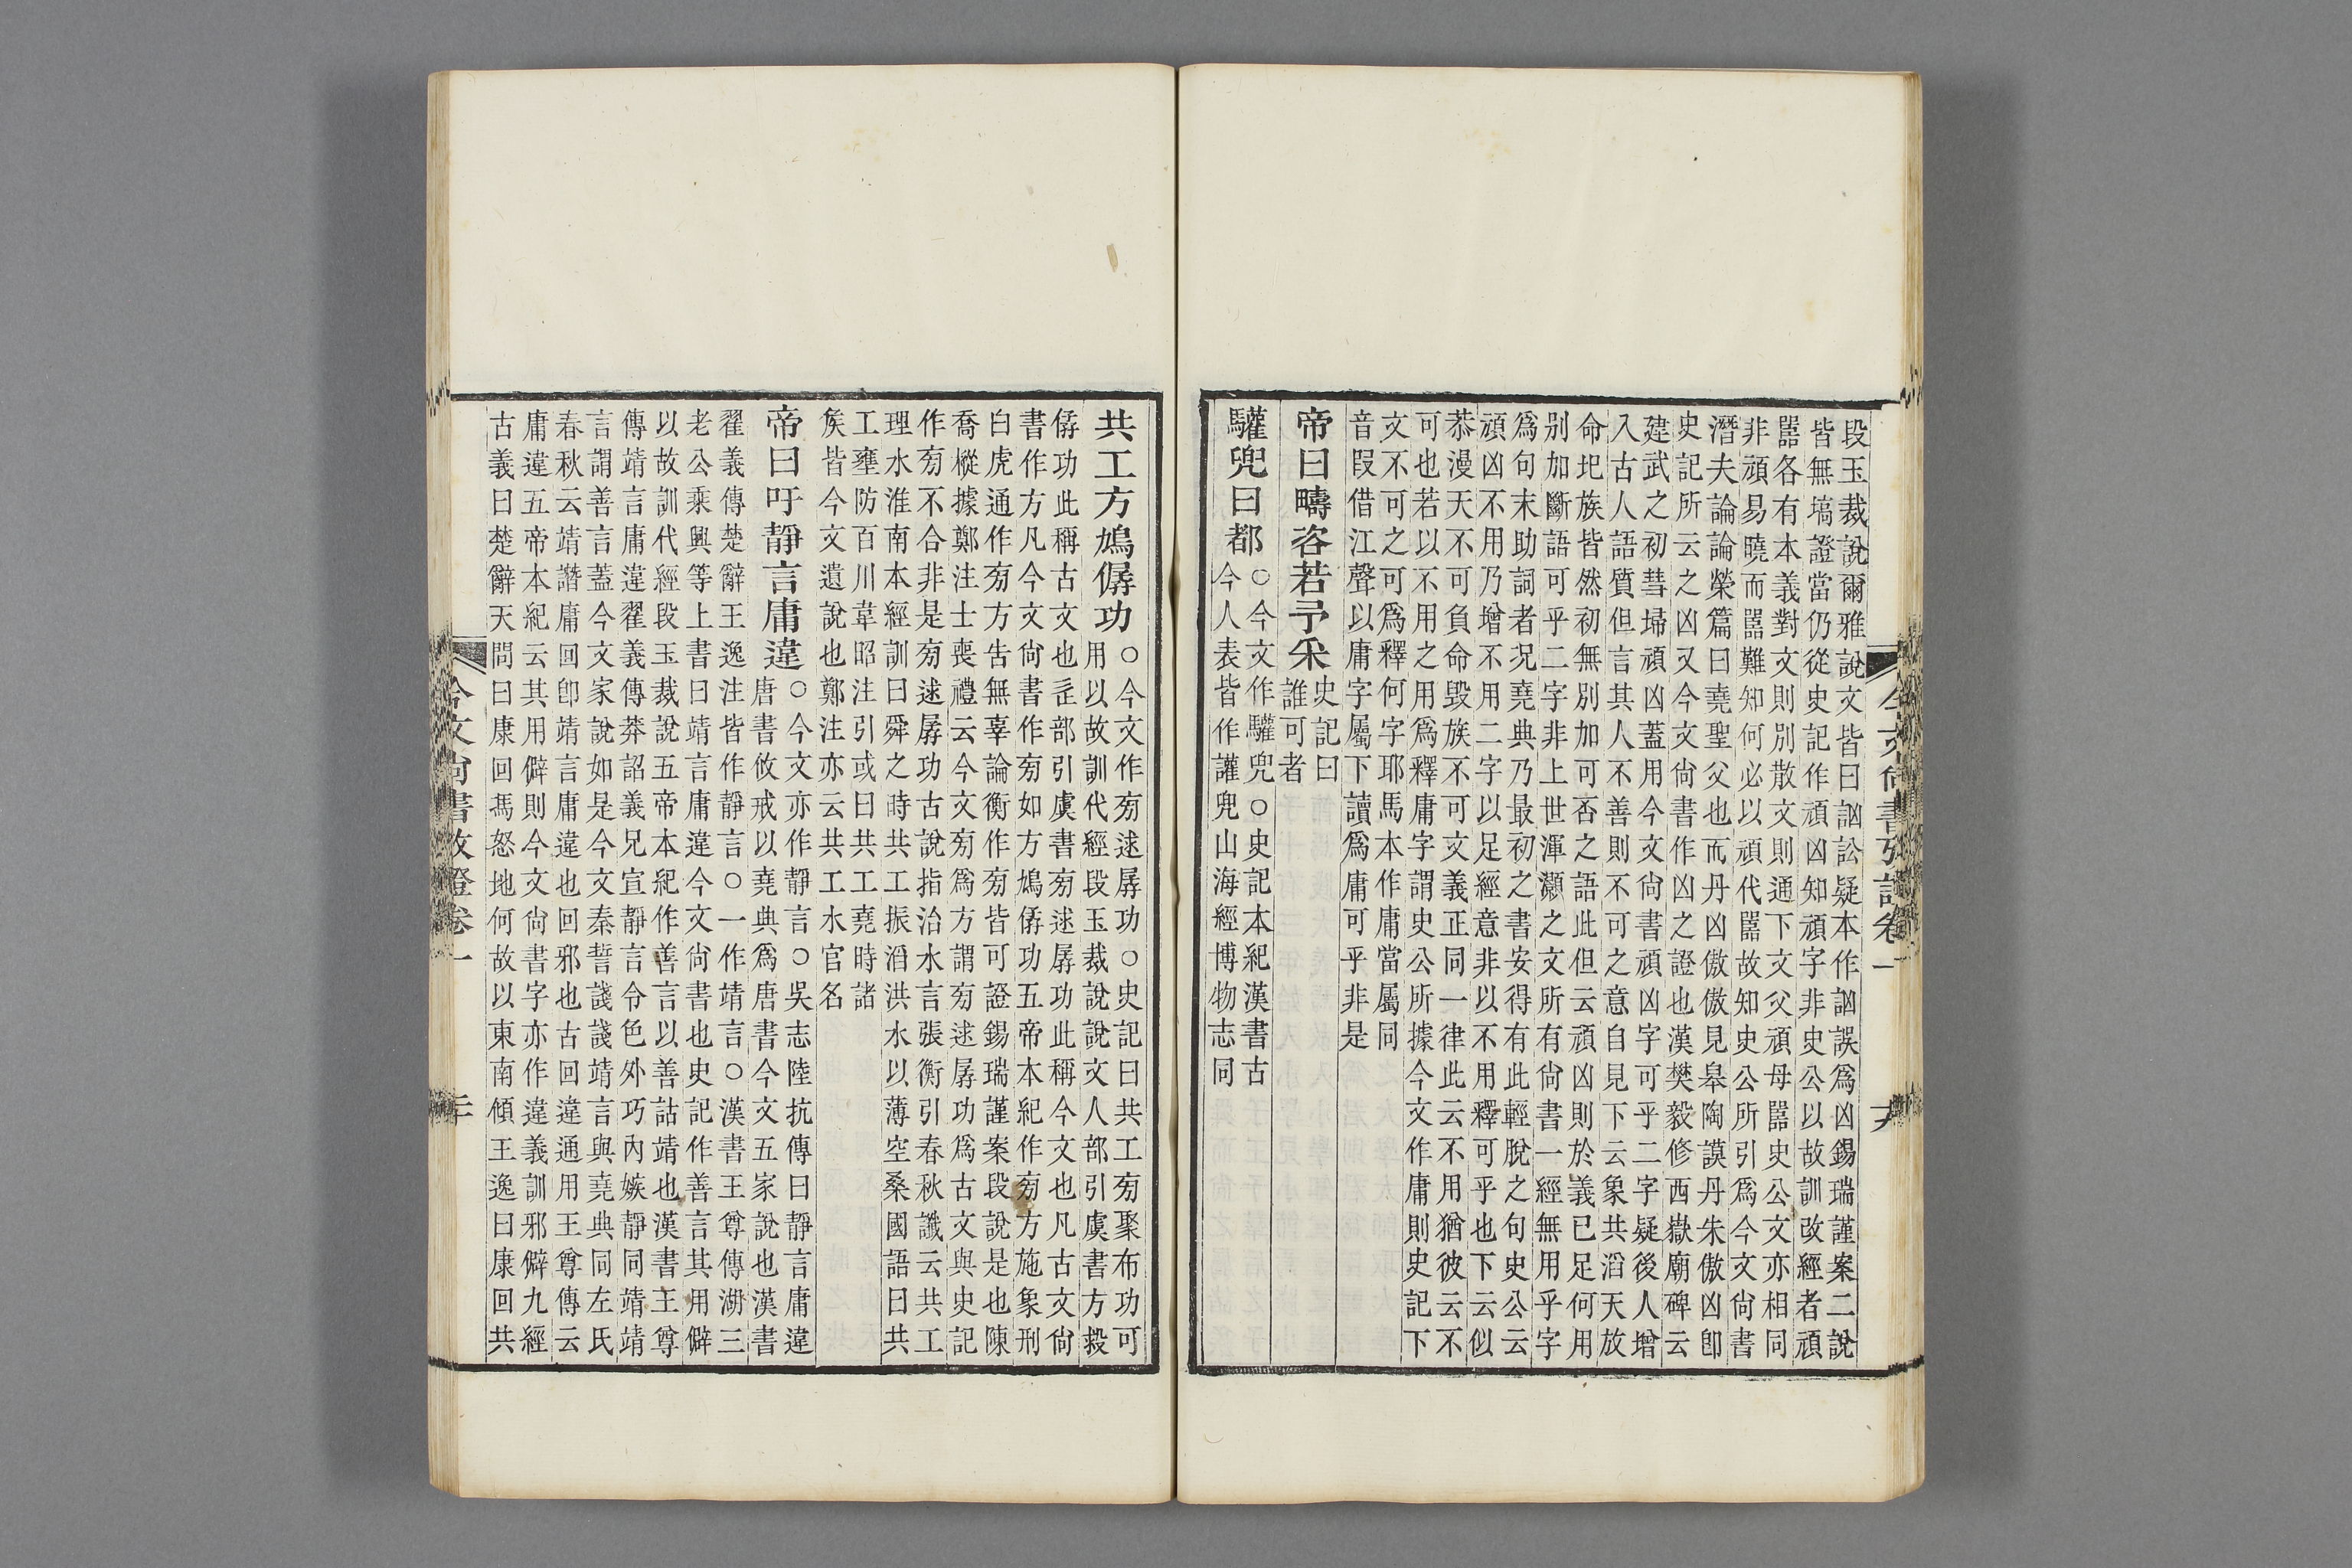 段玉裁說爾雅說文皆曰訩訟疑本作訩誤爲凶錫瑞謹案二說
皆無塙證當仍從史記作頑凶知頑字非史公以故訓改經者頑
嚚各有本義對文則別散文則通下文父頑母嚚史公文亦相同
非頑易曉而嚚難知何必以頑代嚚故知史公所引爲今文尙書
潛夫論論榮篇曰堯聖父也而丹凶傲傲見皋陶謨丹朱傲凶卽
史記所云之凶又今文尙書作凶之證也漢樊毅修西嶽廟碑云
建武之初彗埽頑凶蓋用今文尙書頑凶字可乎二字疑後人增
入古人語質但言其人不善則不可之意自見下云象共滔天放
命圯族皆然初無別加可否之語此但云頑凶則於義已足何用
別加斷語可乎二字非上世渾灝之文所有尙書一經無用乎字
爲句末助詞者況堯典乃最初之書安得有此輕脫之句史公云
頑凶不用乃增不用二字以足經意非以不用釋可乎也下云似
恭漫天不可負命毀族不可文義正同一律此云不用猶彼云不
可也若以不用之用爲釋庸字謂史公所據今文作庸則史記下
文不可之可爲釋何字耶馬本作庸當屬同
音叚借江聲以庸字屬下讀爲庸可乎非是
帝曰疇咨若予采史記曰
誰可者
驩兜曰都○今文作驩兜○史記本紀漢書古
今人表皆作讙兜山海經博物志同
今文尙書攷證卷一
共工方鳩僝功○今文作㫄逑孱功○史記曰共工㫄聚布功可
用以故訓代經段玉裁說說文人部引虞書方救
僝功此稱古文也辵部引虞書㫄逑孱功此稱今文也凡古文尙
書作方凡今文尙書作㫄如方鳩僝功五帝本紀作㫄方施象刑
白虎通作㫄方吿無辜論衡作㫄皆可證錫瑞謹案段說是也陳
喬樅據鄭注士喪禮云今文㫄爲方謂㫄逑孱功爲古文與史記
作㫄不合非是㫄逑孱功古說指治水言張衡引春秋讖云共工
理水淮南本經訓曰舜之時共工振滔洪水以薄空桑國語曰共
工壅防百川韋昭注引或曰共工堯時諸
矦皆今文遺說也鄭注亦云共工水官名
帝曰吁靜言庸違○今文亦作靜言○吳志陸抗傳曰靜言庸違
唐書攸戒以堯典爲唐書今文五家說也漢書
翟義傳楚辭王逸注皆作靜言○一作靖言○漢書王尊傳湖三
老公乘興等上書曰靖言庸違今文尙書也史記作善言其用僻
以故訓代經段玉裁說五帝本紀作善言以善詁靖也漢書王尊
傳靖言庸違翟義傳莽詔義兄宣靜言令色外巧內嫉靜同靖靖
言謂善言蓋今文家說如是今文秦誓諓諓靖言與堯典同左氏
春秋云靖譖庸回卽靖言庸違也回邪也古回違通用王尊傳云
庸違五帝本紀云其用僻則今文尙書字亦作違義訓邪僻九經
古義曰楚辭天問曰康回馮怒地何故以東南傾王逸曰康回共
今文尙書攷證卷一